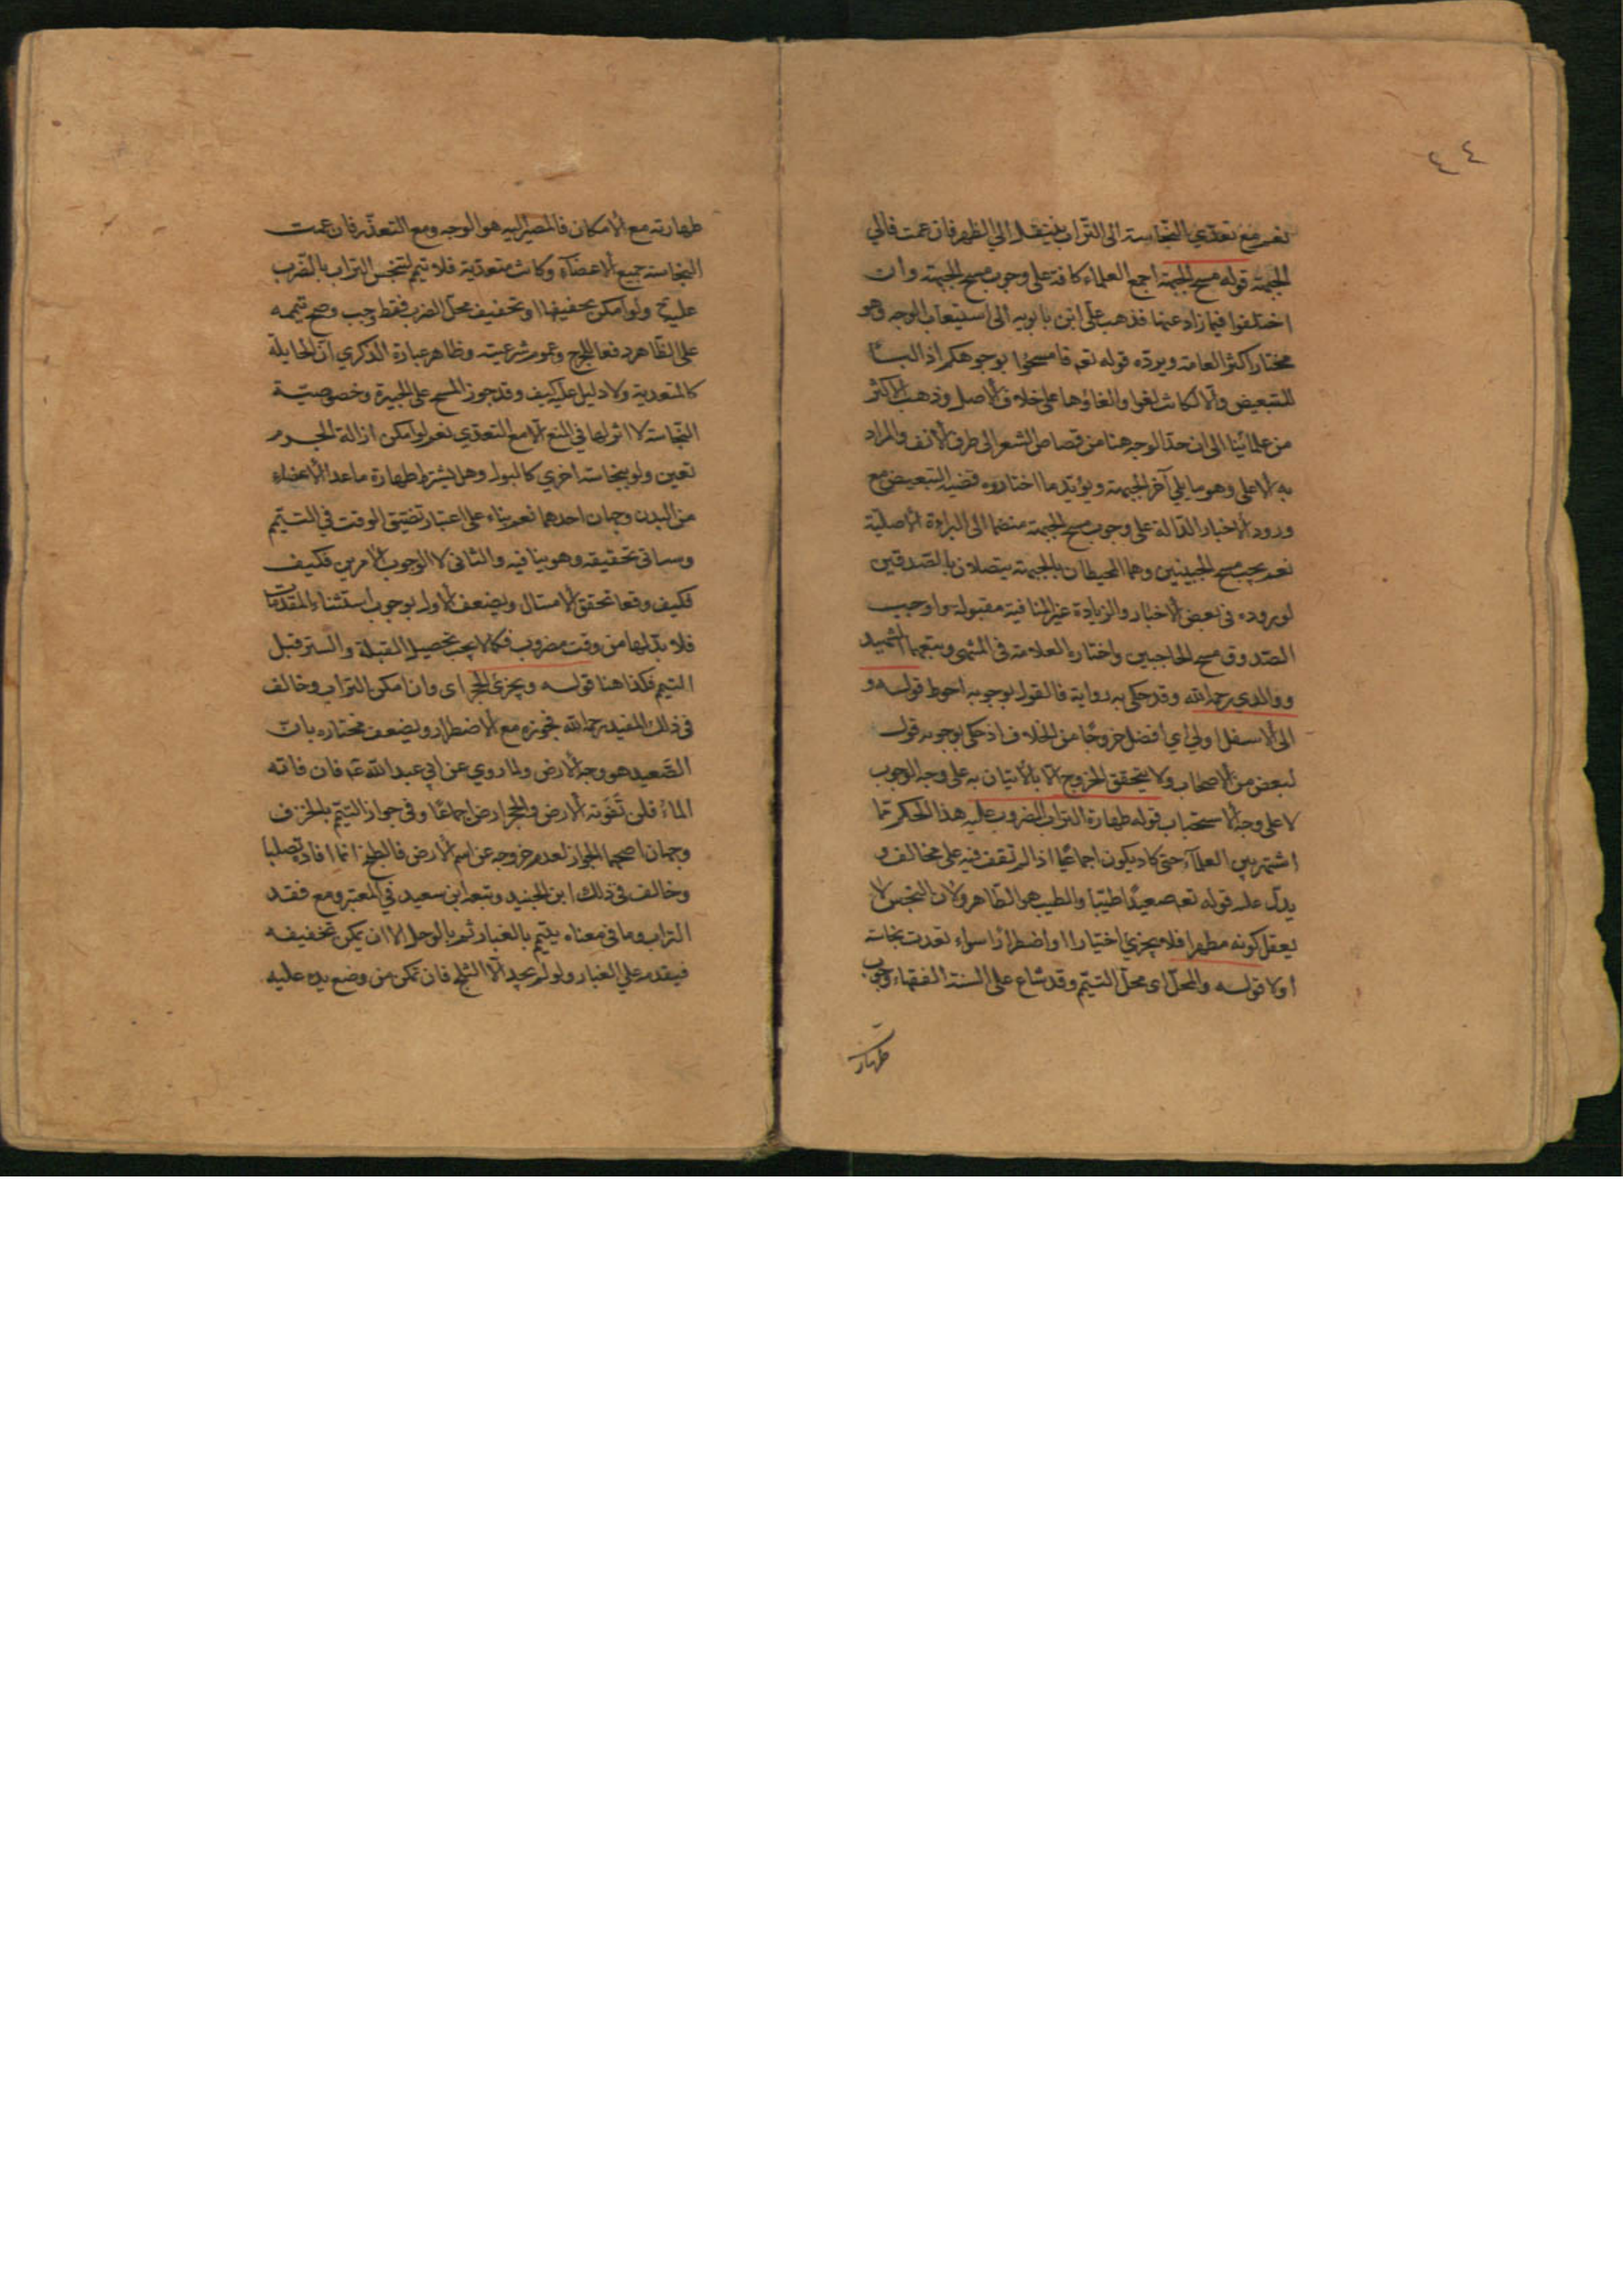 ٤٤
نعم مع تعدي النجاسة الى التراب ينتقل الى الظهر فان عمت فالي
الجبهة قوله مسح الجبهة اجمع العلماء كافة على وجوب مسح الجبهة وان
اختلفوا فيما زاد عنها فذهب على ابن بابويه الى استيعاب الوجه وهو
مختار اكثر العامة ويرده قوله تعم فامسحوا بوجوهكم اذ الباء
للتبعيض والا لكانت لغوا والغاؤها على خلاف الاصل وذهب الاكثر
من علمائنا الى ان حد الوجه هنا من قصاص الشعر الى طرف الانف والمراد
به الاعلى وهو ما يلي آخر الجبهة ويؤيد ما اختاروه قضية التبعيض مع
ورود الاخبار الدالة على وجوب مسح الجبهة منضما الى البراءة الاصلية
نعم يجب مسح الجبينين وهما المحيطان بالجبهة يتصلان بالصدقين
لوروده فى بعض الاخبار والزيادة غير المنافية مقبولة واوجب
الصدوق مسح الحاجبين واختاره العلامة فى المنتهى وتبعهما الشهيد
ووالدي رحمه الله وقد حكى به رواية فالقول بوجوبه احوط قوله و
الى الاسفل اولى اي افضل خروجا من الخلاف اذ حكى بوجوبه قول
لبعض من الاصحاب ولا يتحقق الخروج الا بالاتيان به على وجه الوجوب
لا على وجه الاستحباب قوله طهارة التراب المضروب عليه هذا الحكم مما
اشتهر بين العلماء حتى كاد يكون اجماعيا اذ لم نقف فيه على مخالف و
يدل عليه قوله تعم صعيدا طيبا والطيب هو الطاهر ولان النجس لا
يعقل كونه مطهرا فلا يجزي اختيارا واضطرارا سواء تعدت نجاسته
اولا قوله والمحل اى محل التيمم وقد شاع على السنة الفقهاء وجوب
طهارته
طهارته مع الامكان فالمصير اليه هو الوجه ومع التعذر فان عمت
النجاسة جميع الاعضاء وكانت متعدية فلا تيمم لتنجس التراب بالضرب
عليه ح ولو امكن تجفيفها او تجفيف محل الضرب فقط وجب وصح تيممه
على الظاهر دفعا للحرج وعموم شرعيته وظاهر عبارة الذكرى ان الحايلة
كالمتعدية ولا دليل عليه كيف وقد جوز المسح على الجبيرة وخصوصية
النجاسة لا اثر لها في المنع الا مع التعدي نعم لو امكن ازالة الجرم
تعين ولو بنجاسة اخري كالبول وهل يشترط طهارة ما عدا الاعضاء
من البدن وجهان احدهما نعم بناء على اعتبار تضيق الوقت في التيمم
وسياتى تحقيقه وهو ينافيه والثانى لا لوجوب الامرين فكيف
فكيف وقعا تحقق الامتثال ويضعف الاول بوجوب استثناء المقدمات
فلا بد لها من وقت مضروب فكما لا يجب تحصيل القبلة والستر قبل
التيمم فكذا هنا قوله ويجزئ الحجر اى وان امكن التراب وخالف
فى ذلك المفيد رحمه الله فجوزه مع الاضطرار ويضعف مختاره بان
الصعيد هو وجه الارض ولما روي عن ابي عبد الله عم فان فاته
الماء فلن تفوته الارض والحجر ارض اجماعا وفى جواز التيمم بالخزف
وجهان اصحهما الجواز لعدم خروجه عن اسم الارض فالطبخ انما افاده تصلبا
وخالف فى ذلك ابن الجنيد وتبعه ابن سعيد في المعتبر ومع فقد
التراب وما فى معناه يتيمم بالغبار ثم بالوحل الا ان يمكن تجفيفه
فيقدم علي الغبار ولو لم يجد الا الثلج فان تمكن من وضع يده عليه